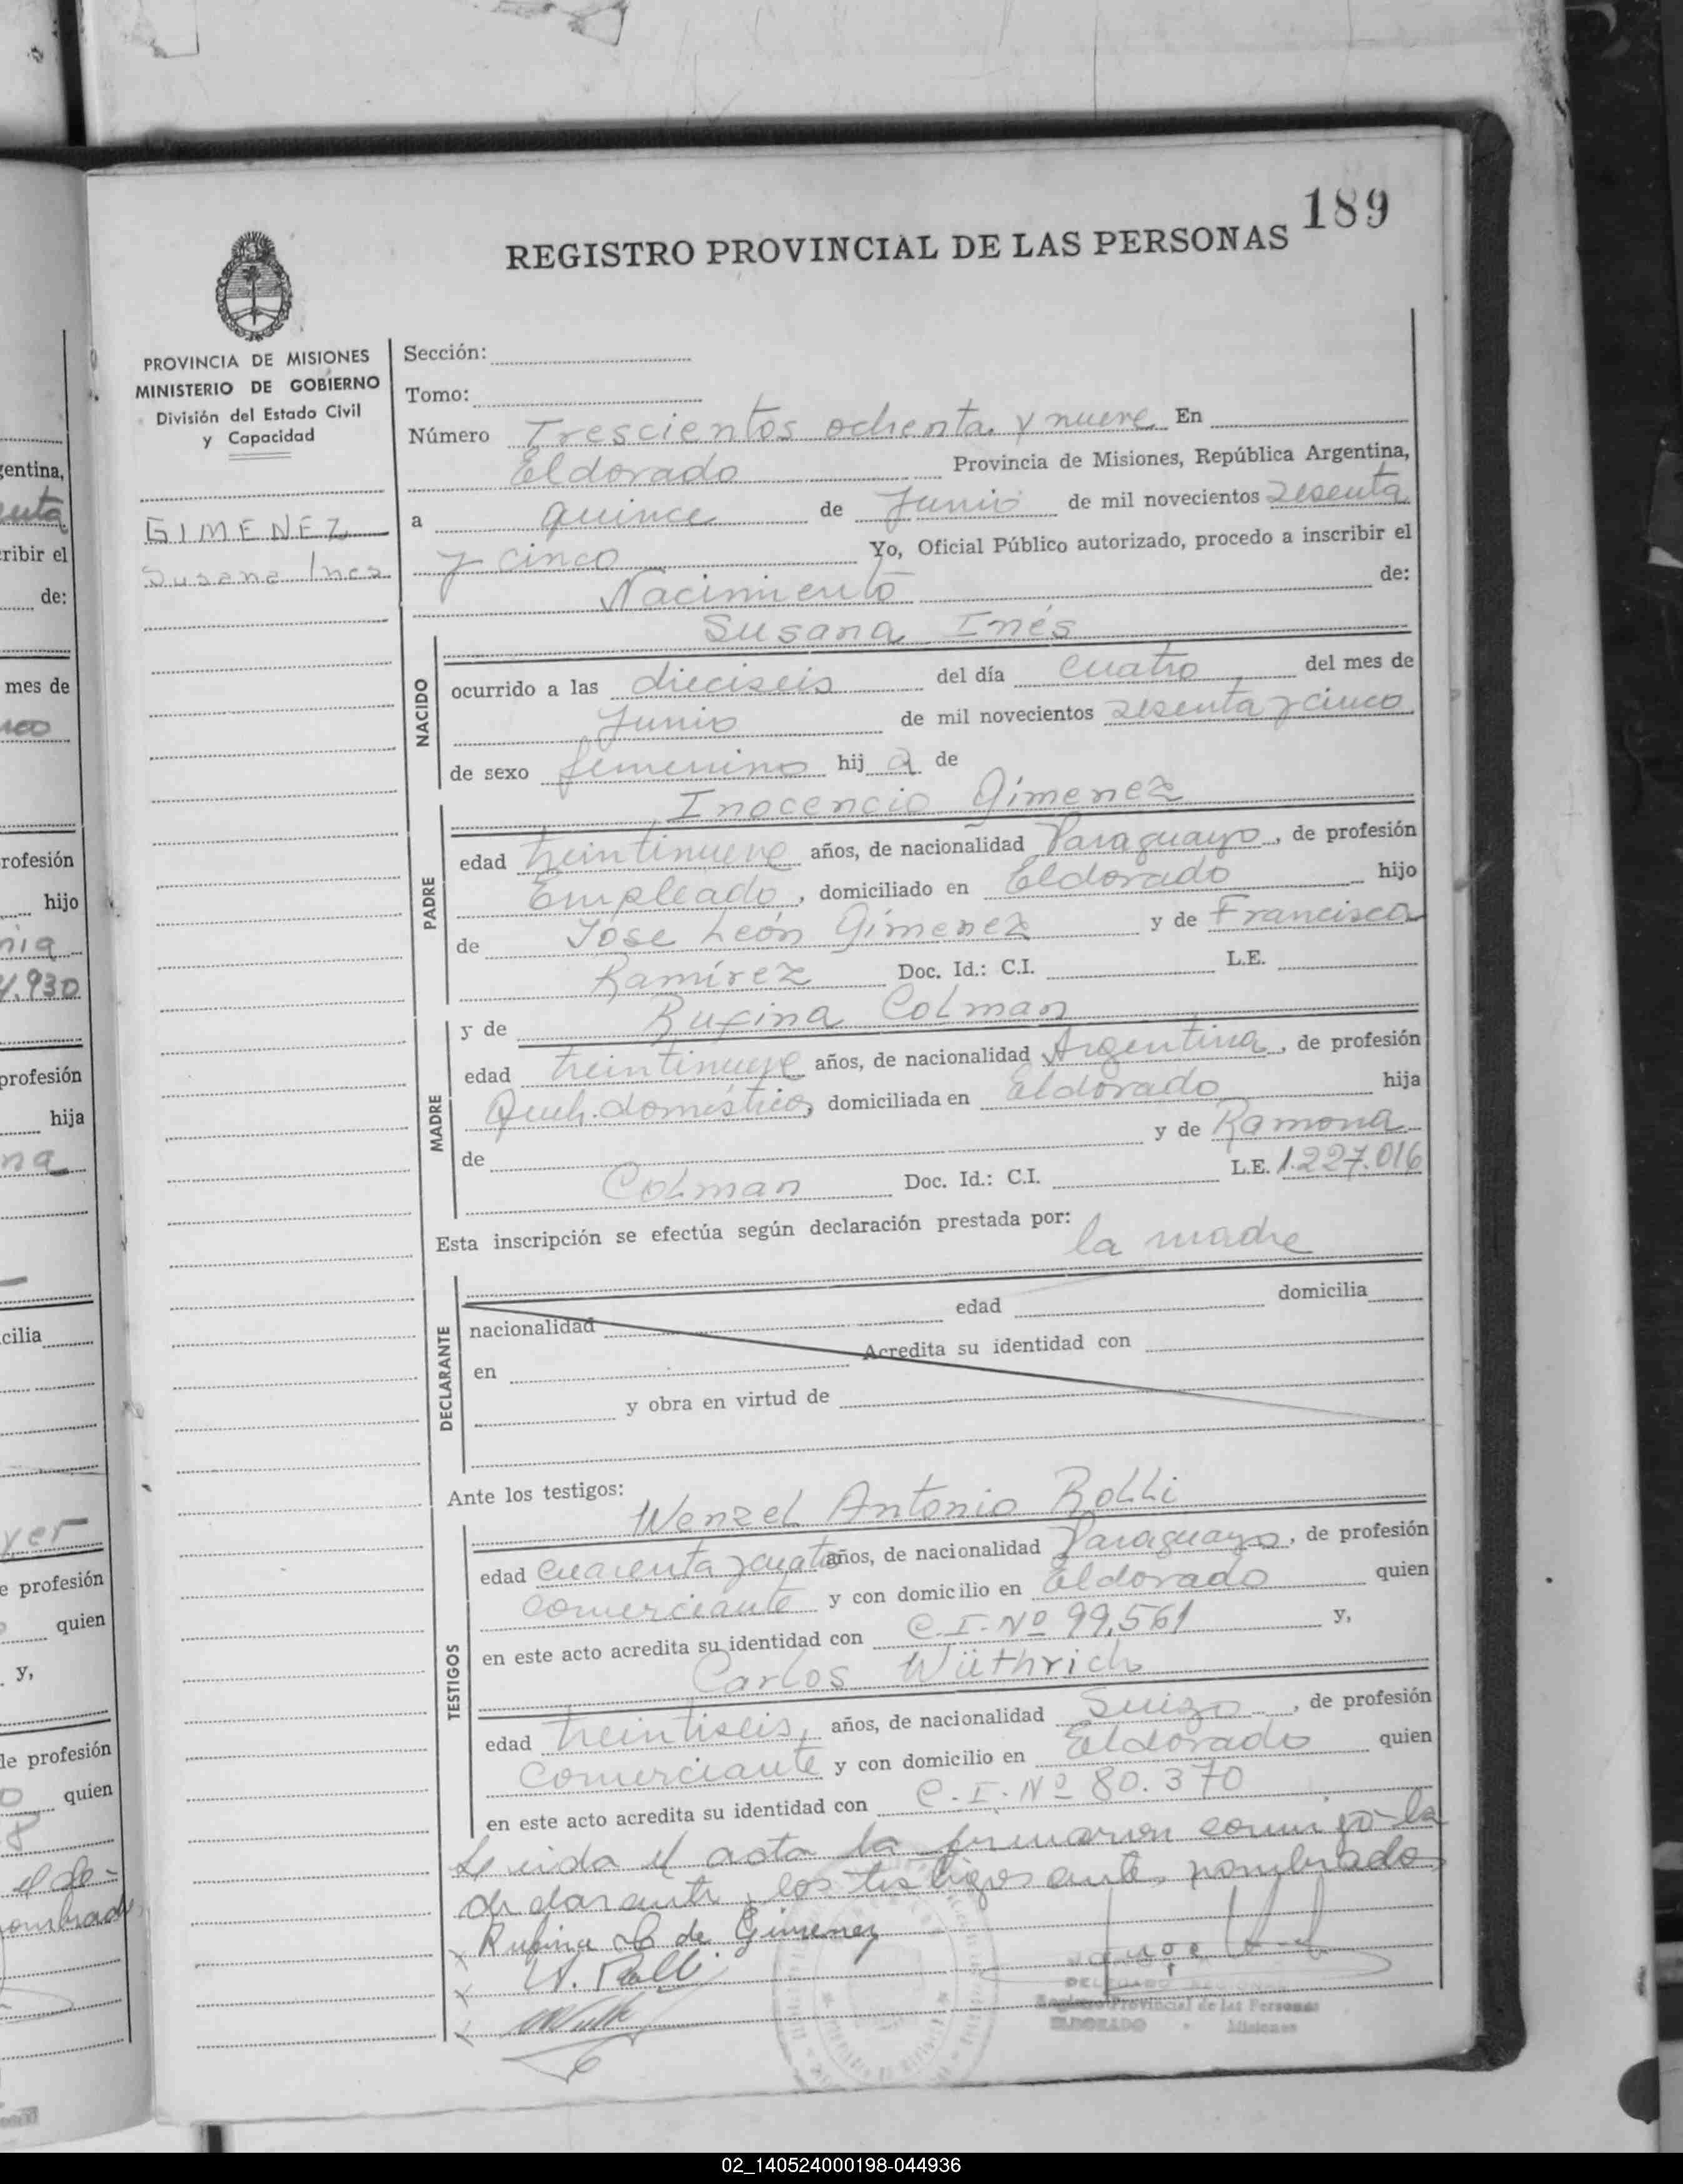 189
REGISTRO PROVINCIAL DE LAS PERSONAS
PROVINCIA DE MISIONES
MINISTERIO DE GOBIERNO
División del Estado Civil
y Capacidad
GIMENEZ
Susana Ines
Sección:
Tomo:
Número Trescientos ochenta y nueve En
Eldorado Provincia de Misiones, República Argentina,
a quince de Junio de mil novecientos sesenta
y cinco Yo, Oficial Público autorizado, procedo a inscribir el
Nacimiento de:
Susana Inés
NACIDO
ocurrido a las dieciseis del día cuatro del mes de
Junio de mil novecientos sesenta y cinco
de sexo femenino hij a de
Inocencio Gimenez
PADRE
edad treintinueve años, de nacionalidad Paraguayo, de profesión
Empleado, domiciliado en Eldorado hijo
de José León Gimenez y de Francisca
Ramírez Doc. Id.: C.I. L.E.
y de Rufina Colman
MADRE
edad treintinueve años, de nacionalidad Argentina, de profesión
Queh. domésticos, domiciliada en Eldorado hija
de y de Ramona
Colman Doc. Id.: C.I. L.E. 1.227.016
Esta inscripción se efectúa según declaración prestada por:
la madre
DECLARANTE
nacionalidad edad domicilia
en Acredita su identidad con
y obra en virtud de
Ante los testigos:
Wenzel Antonio Rolli
TESTIGOS
edad cuarenta y cuatro años, de nacionalidad Paraguayo, de profesión
comerciante y con domicilio en Eldorado quien
en este acto acredita su identidad con C.I. Nº 99.561 y,
Carlos Wüthrich
edad treintiseis, años, de nacionalidad Suizo, de profesión
Comerciante y con domicilio en Eldorado quien
en este acto acredita su identidad con C.I. Nº 80.370
Leida el acta la firmaron conmigo la
declarante, los testigos ante nombrados
x Rufina C de Gimenez
x W. Rolli
x
DELEGADO
Registro Provincial de las Personas
ELDORADO - Misiones
gentina,
ribir el
de:
mes de
rofesión
hijo
4.930
profesión
hija
na
cilia
ver
e profesión
quien
y,
le profesión
quien
02_140524000198-044936